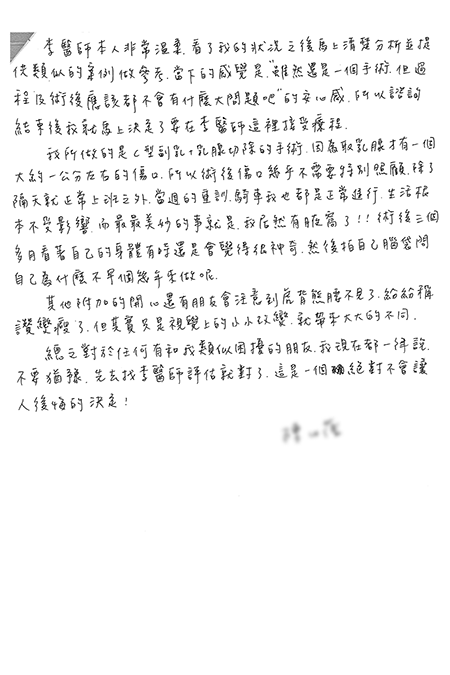 李醫師本人非常溫柔,看了我的狀況之後馬上清楚分析並提
供類似的案例做參考,當下的感覺是"雖然還是一個手術,但過
程及術後應該都不會有什麼大問題吧"的安心感,所以諮詢
結束後我就馬上決定了要在李醫師這裡接受療程。
我所做的是C型副乳+乳腺切除的手術,因為取乳腺才有一個
大約一公分左右的傷口,所以術後傷口幾乎不需要特別照顧,除了
隔天就正常上班之外,當週的重訓,騎車我也都是正常進行,生活根
本不受影響,而最最美妙的事就是,我居然有腋窩了!!術後三個
多月看著自己的身體有時還是會覺得很神奇,然後拍自己腦袋問
自己為什麼不早個幾年來做呢。
其他附加的開心還有朋友會注意到虎背熊腰不見了,紛紛稱
讚變瘦了,但其實只是視覺上的小小改變,就帶來大大的不同。
總之對於任何有和我類似困擾的朋友,我現在都一律說,
不要猶豫,先去找李醫師評估就對了,這是一個絕對不會讓
人後悔的決定!